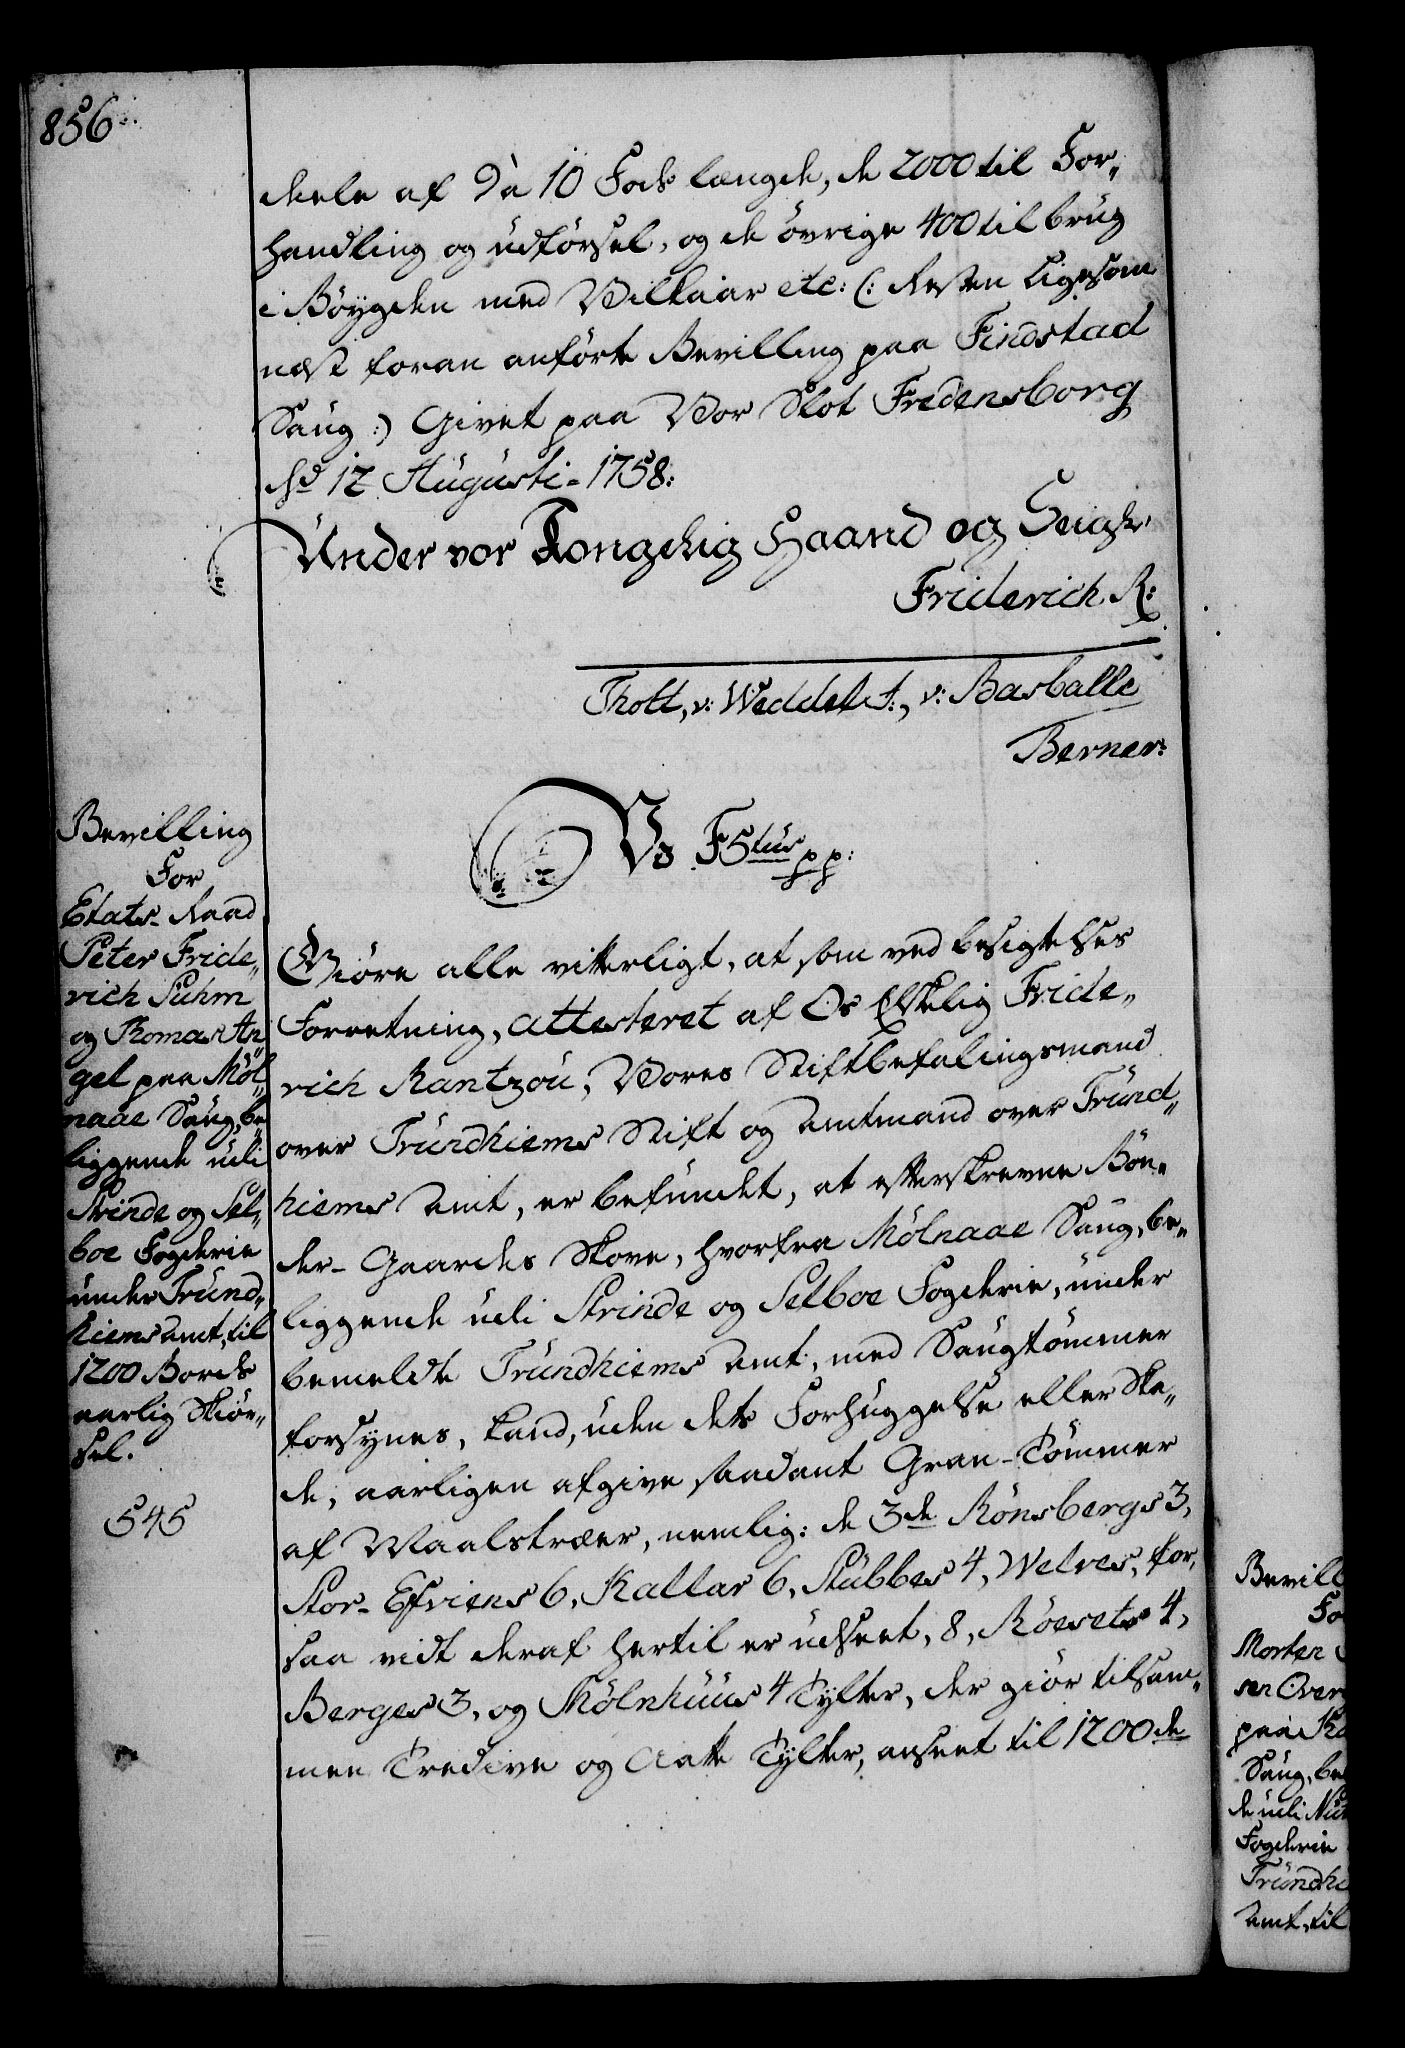 856
deele af 9 à 10 Fods længde, de 2000 til For„
handling og udførsel, og de øvrige 400 til brug
i Bøygden med Vilkaar etc: (: Resten ligesom
næst foran anførte Bevilling paa Findstad
Saug :) Givet paa Vor Slot Fredensborg
d 12 Augusti - 1758:
Under vor Kongelig Haand og Seigl.
Friderich R:
Thott, v: Weddel, v: Barballe
Berner:
Bevilling
For
Etats-Raad
Peter Fride„
rich Suhm
og Thomas An„
gel paa Møl„
naae Saug, be„
liggende udi
Strinde og Sel„
boe Fogderie
under Trund„
hiems Amt, til
1200 Bords
aarlig Skiør„
sel.
545
Vs F5tus pp:
Giøre alle vitterligt, at som ved besigtelses
Forretning, attesteret af Os Elskelig Fride„
rich Rantzou, Vores Stiftbefalingsmand
over Trundhiems Stift og Amtmand over Trund„
hiems Amt, er befundet, at efterskrevne Bøn„
der-Gaardes Skove, hvorfra Mølnaae Saug, be„
liggende udi Strinde og Selboe Fogderie, under
bemeldte Trundhiems Amt, med Saugtømmer
forsynes, kand, uden dets Forhuggelse eller Ska„
de, aarligen afgive saadant Gran-Tømmer
af Maalstræer, nemlig: de 3de Rønsbergs 3,
Stor-Efviens 6, Kallar 6, Stubbes 4, Welves, for,
saa vidt deraf hertil er udseet, 8, Røesets 4,
Berges 3, og Mølnhuus 4 Tylter, der giør tilsam„
men Tredive og Aatte Tylter, anseet til 1200 de
Bevill
Fo
Morten
sen Over
paa
Saug, be
de udi
Fogderie
Trundhi
Amt, til